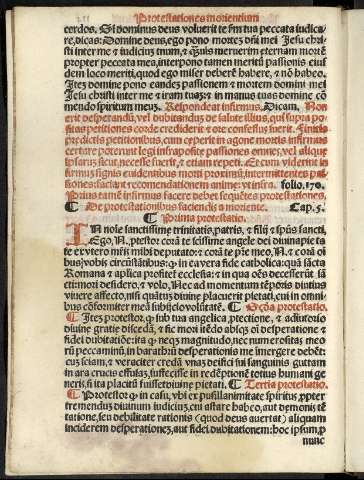 Protestationes morientium
cerdos. Si dominus deus voluerit te scđm tua peccata iudica-
re, dicas: Domine deus, ego pono mortẽ dñi mei Jesu chri-
sti inter me & iudiciũ tuum, & quis meruerim eternam mortẽ
propter peccata mea, interpono tamen meritũ passionis eius-
dem loco meriti, quod ego miser deberẽ habere, & nõ habeo.
Itẽ domine pono eandẽ passionem & mortem domini mei
Jesu christi inter me & iram tuam: & in manus tuas domine cõ-
mendo spiritum meuz. Respondeat infirmus, Dicam. Non
erit desperandũ, vel dubitanduz de salute illius, qui supra po-
sitas petitiones corde crediderit & ore confessus fuerit. Finitis
predictis petitionibus, cum ceperit in agone mortis infirmus
certare poterunt legi infraposite passiones omnes, vel alique
ipsarũ sicut necesse fuerit, & etiam repeti. Et cum viderint in
firmuz signis euidentibus morti proximũ, intermittentes pas-
siones: faciant recomendationem anime: vt infra. folio. 170.
Prius tamẽ infirmus facere debet sequẽtes protestationes.
¶ De protestatiõibus faciendis a moriente. Cap. 5.
¶ Prima protestatio.
IN noie sanctissime trinitatis, patris, & filij & spũs sancti,
Ego, N, ptestor corã te sctissime angele dei diuina pieta
te ex vtero mr̃is mihi deputato: & corã te pr̃e meo, N, & corã oĩ
bus vobis circũstãtibus: ꝙ in ea vera fide catholica: quã sãcta
Romana & aplica profitet ecclesia: & in qua oẽs decesserũt sã
cti mori desidero, & volo, Nec ad momentum tẽporis diutius
viuere affecto, nisi quãtuz diuine placuerit pietati, cui in omni-
bus cõformiter me & subijcio volũtatẽ. ¶ Scđa protestatio.
¶ Itez protestor, ꝙ sub tua angelica ptectione, & adiutorio
diuine gratie discedã, & sic mori itẽdo absqz oĩ desperatione &
fidei dubitatiõe: ita ꝙ neqz magnitudo, nec numerositas meo
rũ peccaminũ, in barathrũ desperationis me imergere debẽt:
cuz sciam, & veraciter credã vnaz dei filij sui sanguinis guttam
in ara crucis effusaz, suffecisse in redẽptionẽ totius humani ge
neris, si ita placitũ fuisset diuine pietati. ¶ Tertia protestatio.
¶ Protestor ꝙ in casu, vbi ex pusillanimitate spiritus, ppter
tremendus diuinum iudicium, cui astare habeo, aut demonis tẽ
tatione, seu debilitate rationis (quod deus auertat) aliquam
inciderem desperationez, aut fidei dubitationem: hoc ipsum, p
nunc